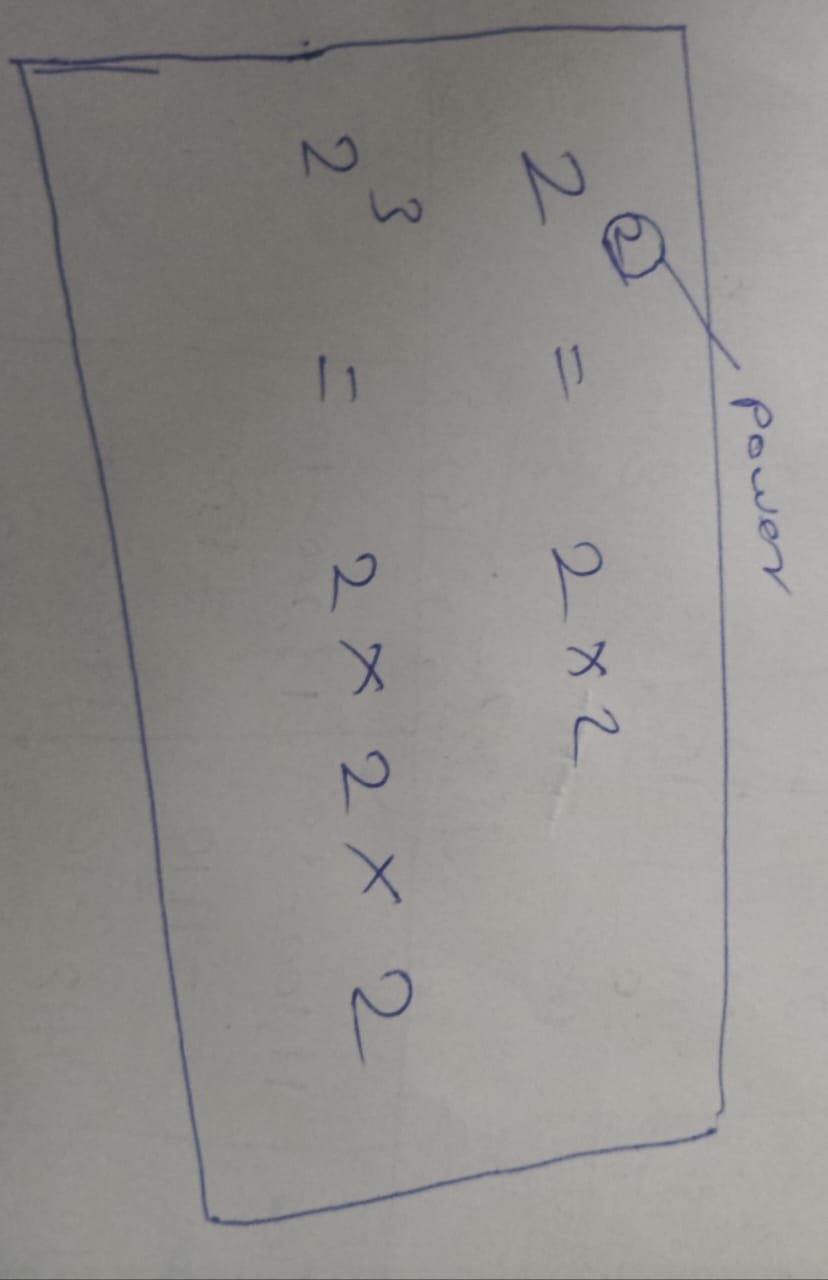 Power
2² = 2 × 2
2³ = 2 × 2 × 2